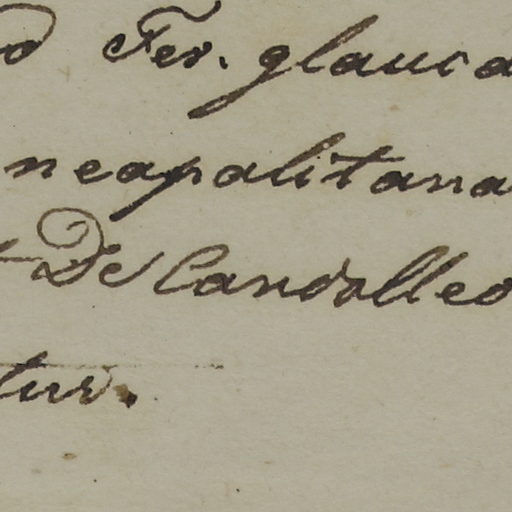 d Fer. glauca
neapolitana
t De Candolleo
tur.